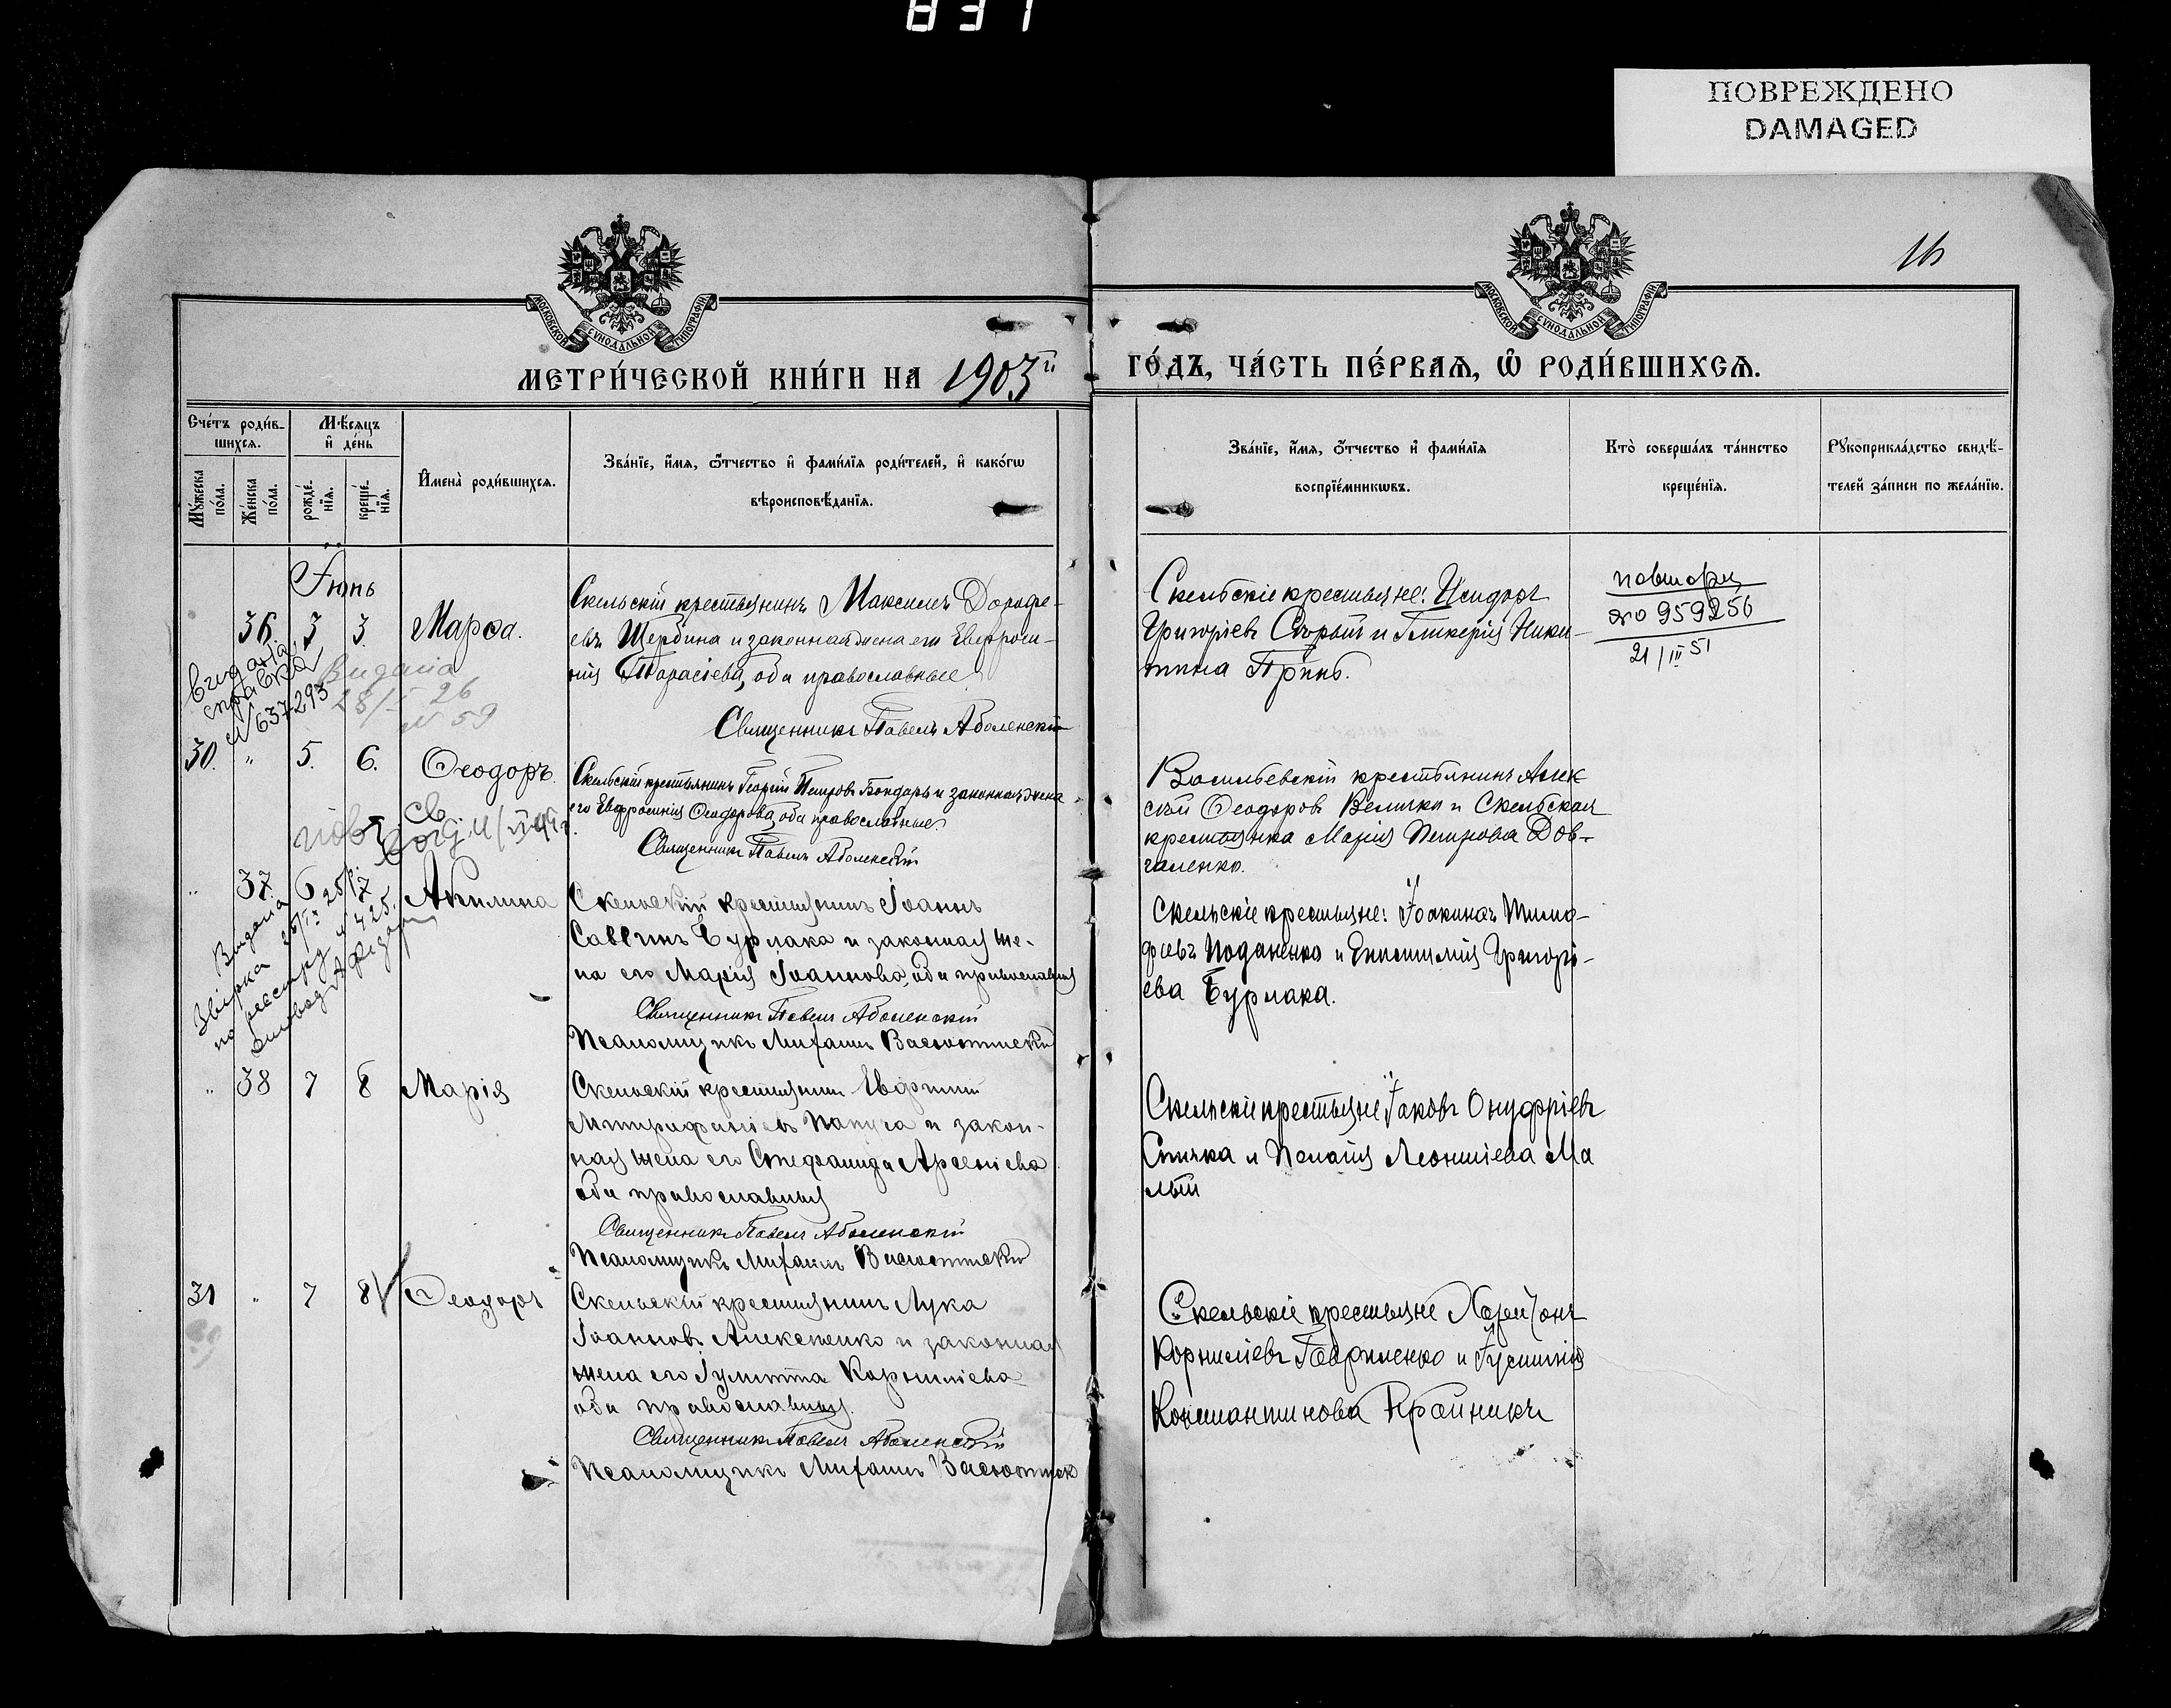 831
ПОВРЕЖДЕНО
DAMAGED
16
МОСКОВСКОЙ СѴНОДАЛЬНОЙ ТИПОГРАФІИ
МОСКОВСКОЙ СѴНОДАЛЬНОЙ ТИПОГРАФІИ
МЕТРИ́ЧЕСКОЙ КНИ́ГИ НА 1903й ГО́ДЪ, ЧА́СТЬ ПЕ́РВАѦ, Ѽ РОДИ́ВШИХСѦ.
Сче́тъ роди́в-
шихсѧ.
Мꙋ́жеска по́ла.
Же́нска по́ла.
Мѣ́сѧцъ
и҆ де́нь
рожде́-
нїѧ.
креще́-
нїѧ.
И҆мена̀ роди́вшихсѧ.
Зва́нїе, и҆́мѧ, ѻ҆́тчество и҆ фами́лїѧ роди́телей, и҆ како́гѡ
вѣроисповѣ́данїѧ.
Зва́нїе, и҆́мѧ, ѻ҆́тчество и҆ фами́лїѧ
воспрїе́мникѡвъ.
Кто̀ соверша́лъ та́инство
креще́нїѧ.
Рꙋкоприкла́дство свидѣ́-
телей за́писи по жела́нїю.
Іюнь
36. 3 3. Марѳа.
Скельскій крестьянинъ Максимъ Дорофе-
евъ Щербина и законная жена его Евфроси-
нія Тарасіева, оба православные
Священникъ Павелъ Аболенскій
Скельскіе крестьяне: Исидоръ
Григоріевъ Сѣрый и Гликерія Ники-
тина Принь.
повторн
яю 959256
21/III 51
справка
N 637293
Видана
28/I 26
N 59
30. " 5. 6. Ѳеодоръ.
Скельскій крестьянинъ Георгій Петровъ Бондарь и законная жена
его Евфросинія Ѳеодорова, оба православные.
Священникъ Павелъ Аболенскій
Васильевскій крестьянинъ Алек
сѣй Ѳеодоровъ Величко и Скельская
крестьянка Марія Петрова Дов-
галенко.
повт св
" 37. 6 7 Акилина
Скельскій крестьянинъ Іоаннъ
Саввинъ Бурлака и законная же-
на его Марія Іоаннова, оба православныя
Священникъ Павелъ Аболенскій
Псаломщикъ Михаилъ Васютинскій
Скельскіе крестьяне: Іоакимъ Тимо-
феевъ Поданенко и Евстимія Григорі-
ева Бурлака.
Видана
по реестру N 425.
" 38 7 8 Марія
Скельскій крестьянинъ Евфимій
Митрофаніевъ Папуга и закон-
ная жена его Стефанида Арсеніева
оба православныя
Священникъ Павелъ Аболенскій
Псаломщикъ Михаилъ Васютинскій
Скельскіе крестьяне Іаковъ Онуфріевъ
Спичка и Пелагія Леонтіева Ма
лый
31 " 7 8 Ѳеодоръ
Скельскій крестьянинъ Лука
Іоанновъ Алексѣенко и законная
жена его Іулитта Корниліева
оба православныя.
Священникъ Павелъ Аболенскій
Псаломщикъ Михаилъ Васютинскій
Скельскіе крестьяне Харитонъ
Корниліевъ Гавриленко и Іустинія
Константинова Крайникъ